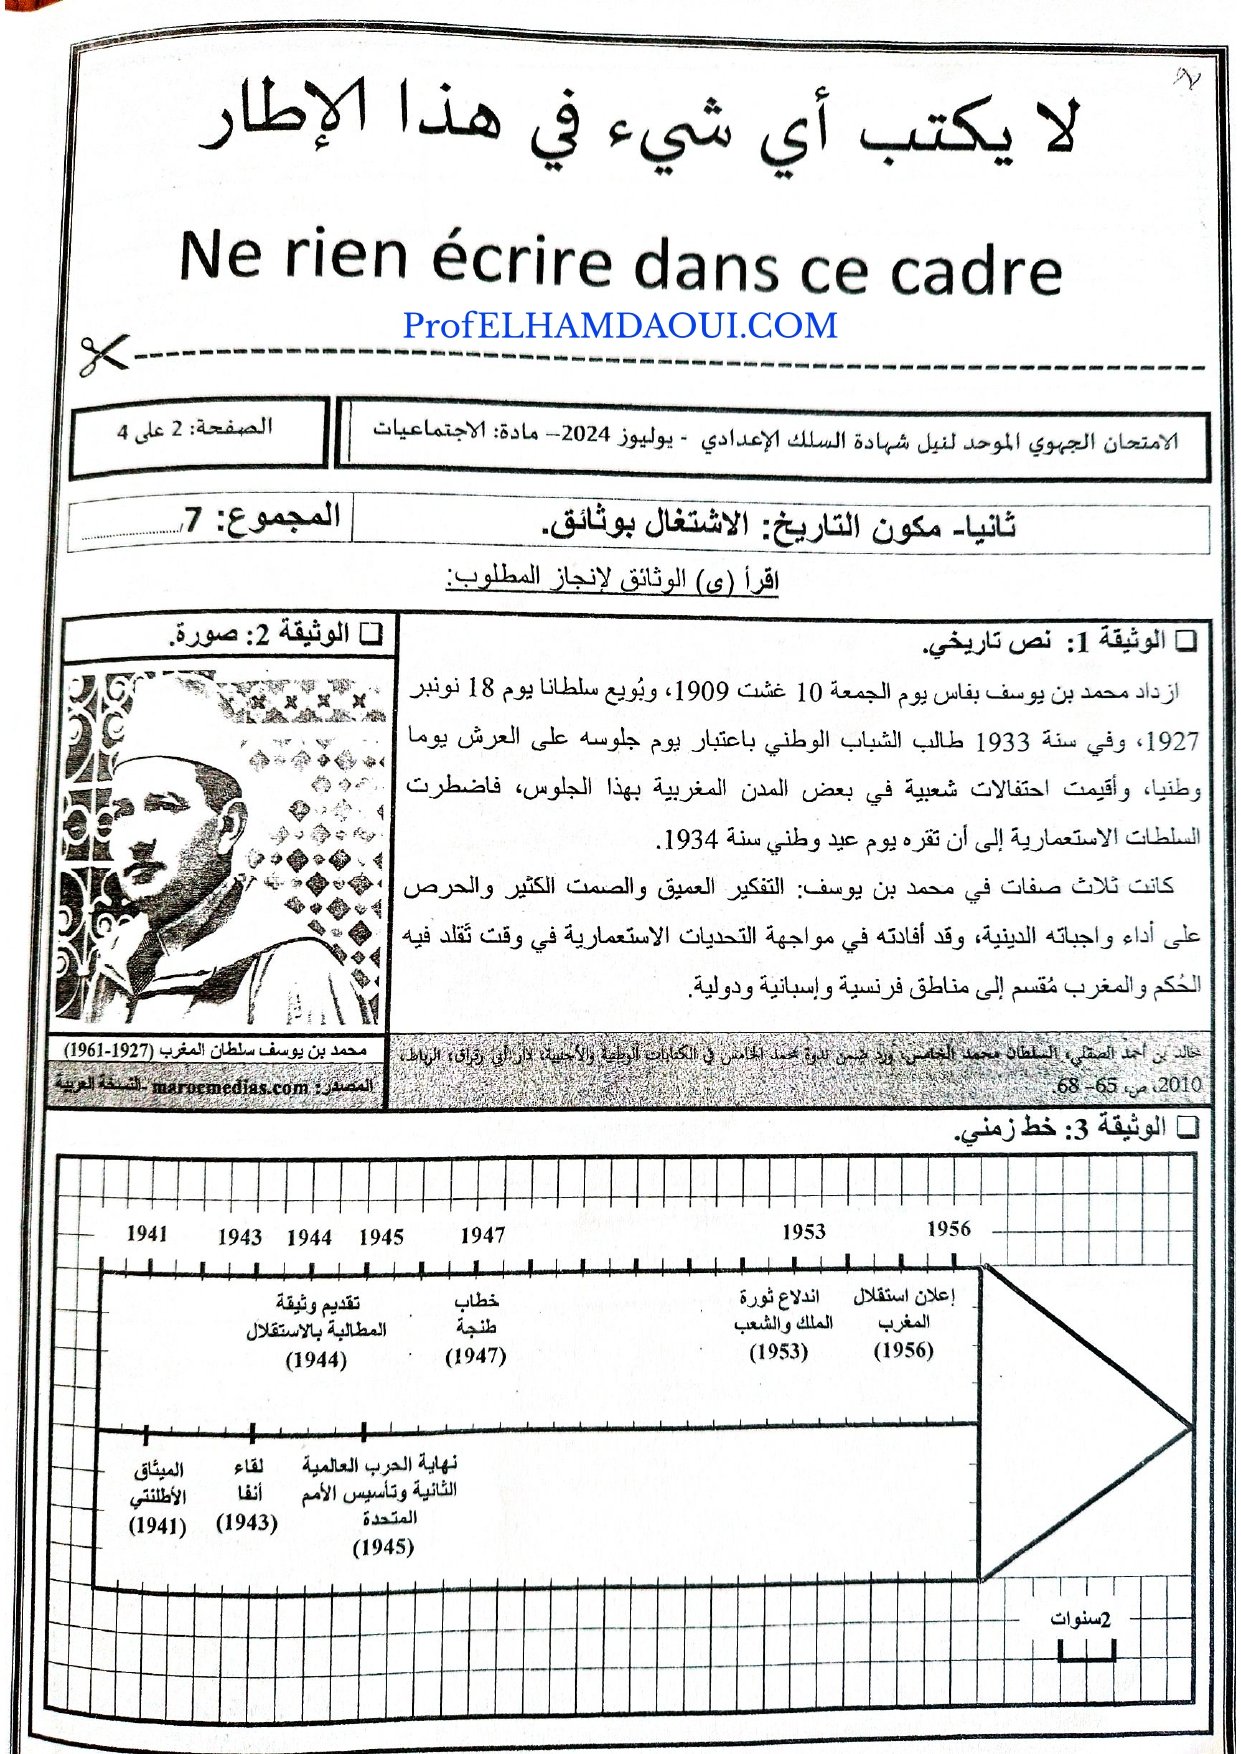 لا يكتب أي شيء في هذا الإطار
Ne rien écrire dans ce cadre
ProfELHAMDAOUI.COM
الامتحان الجهوي الموحد لنيل شهادة السلك الإعدادي - يوليوز 2024– مادة: الاجتماعيات
الصفحة: 2 على 4
ثانيا- مكون التاريخ: الاشتغال بوثائق.
المجموع: 7/..................
اقرأ (ي) الوثائق لإنجاز المطلوب:
❑ الوثيقة 1: نص تاريخي.
ازداد محمد بن يوسف بفاس يوم الجمعة 10 غشت 1909، وبُويع سلطانا يوم 18 نونبر
1927، وفي سنة 1933 طالب الشباب الوطني باعتبار يوم جلوسه على العرش يوما
وطنيا، وأقيمت احتفالات شعبية في بعض المدن المغربية بهذا الجلوس، فاضطرت
السلطات الاستعمارية إلى أن تقره يوم عيد وطني سنة 1934.
كانت ثلاث صفات في محمد بن يوسف: التفكير العميق والصمت الكثير والحرص
على أداء واجباته الدينية، وقد أفادته في مواجهة التحديات الاستعمارية في وقت تَقلد فيه
الحُكم والمغرب مُقسم إلى مناطق فرنسية وإسبانية ودولية.
خالد بن أحمد الصقلي، السلطان محمد الخامس، ورد ضمن ندوة محمد الخامس في الكتابات الوطنية والأجنبية، دار أبي رقراق، الرباط،
2010، ص، 65– 68.
❑ الوثيقة 2: صورة.
محمد بن يوسف سلطان المغرب (1927-1961)
المصدر: marocmedias.com -النسخة العربية
❑ الوثيقة 3: خط زمني.
1941 1943 1944 1945 1947 1953 1956
تقديم وثيقة
المطالبة بالاستقلال
(1944)
خطاب
طنجة
(1947)
اندلاع ثورة
الملك والشعب
(1953)
إعلان استقلال
المغرب
(1956)
الميثاق
الأطلنتي
(1941)
لقاء
أنفا
(1943)
نهاية الحرب العالمية
الثانية وتأسيس الأمم
المتحدة
(1945)
2سنوات